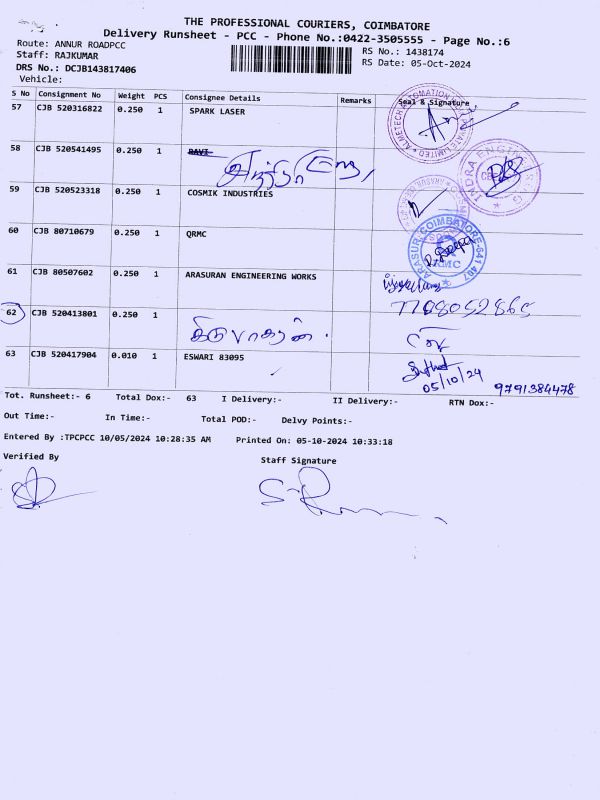 THE PROFESSIONAL COURIERS, COIMBATORE
Delivery Runsheet - PCC - Phone No.:0422-3505555 - Page No.:6
Route: ANNUR ROADPCC
RS No.: 1438174
Staff: RAJKUMAR
RS Date: 05-Oct-2024
DRS No.: DCJB143817406
Vehicle:
S No Consignment No Weight PCS Consignee Details Remarks Seal & Signature
57 CJB 520316822 0.250 1 SPARK LASER
58 CJB 520541495 0.250 1 RAVI
59 CJB 520523318 0.250 1 COSMIK INDUSTRIES
60 CJB 80710679 0.250 1 QRMC
61 CJB 80507602 0.250 1 ARASURAN ENGINEERING WORKS
7708052865
62 CJB 520413801 0.250 1 திருவாகரன்.
63 CJB 520417904 0.010 1 ESWARI 83095
05/10/24 9791384478
Tot. Runsheet:- 6 Total Dox:- 63 I Delivery:- II Delivery:- RTN Dox:-
Out Time:- In Time:- Total POD:- Delvy Points:-
Entered By :TPCPCC 10/05/2024 10:28:35 AM Printed On: 05-10-2024 10:33:18
Verified By Staff Signature